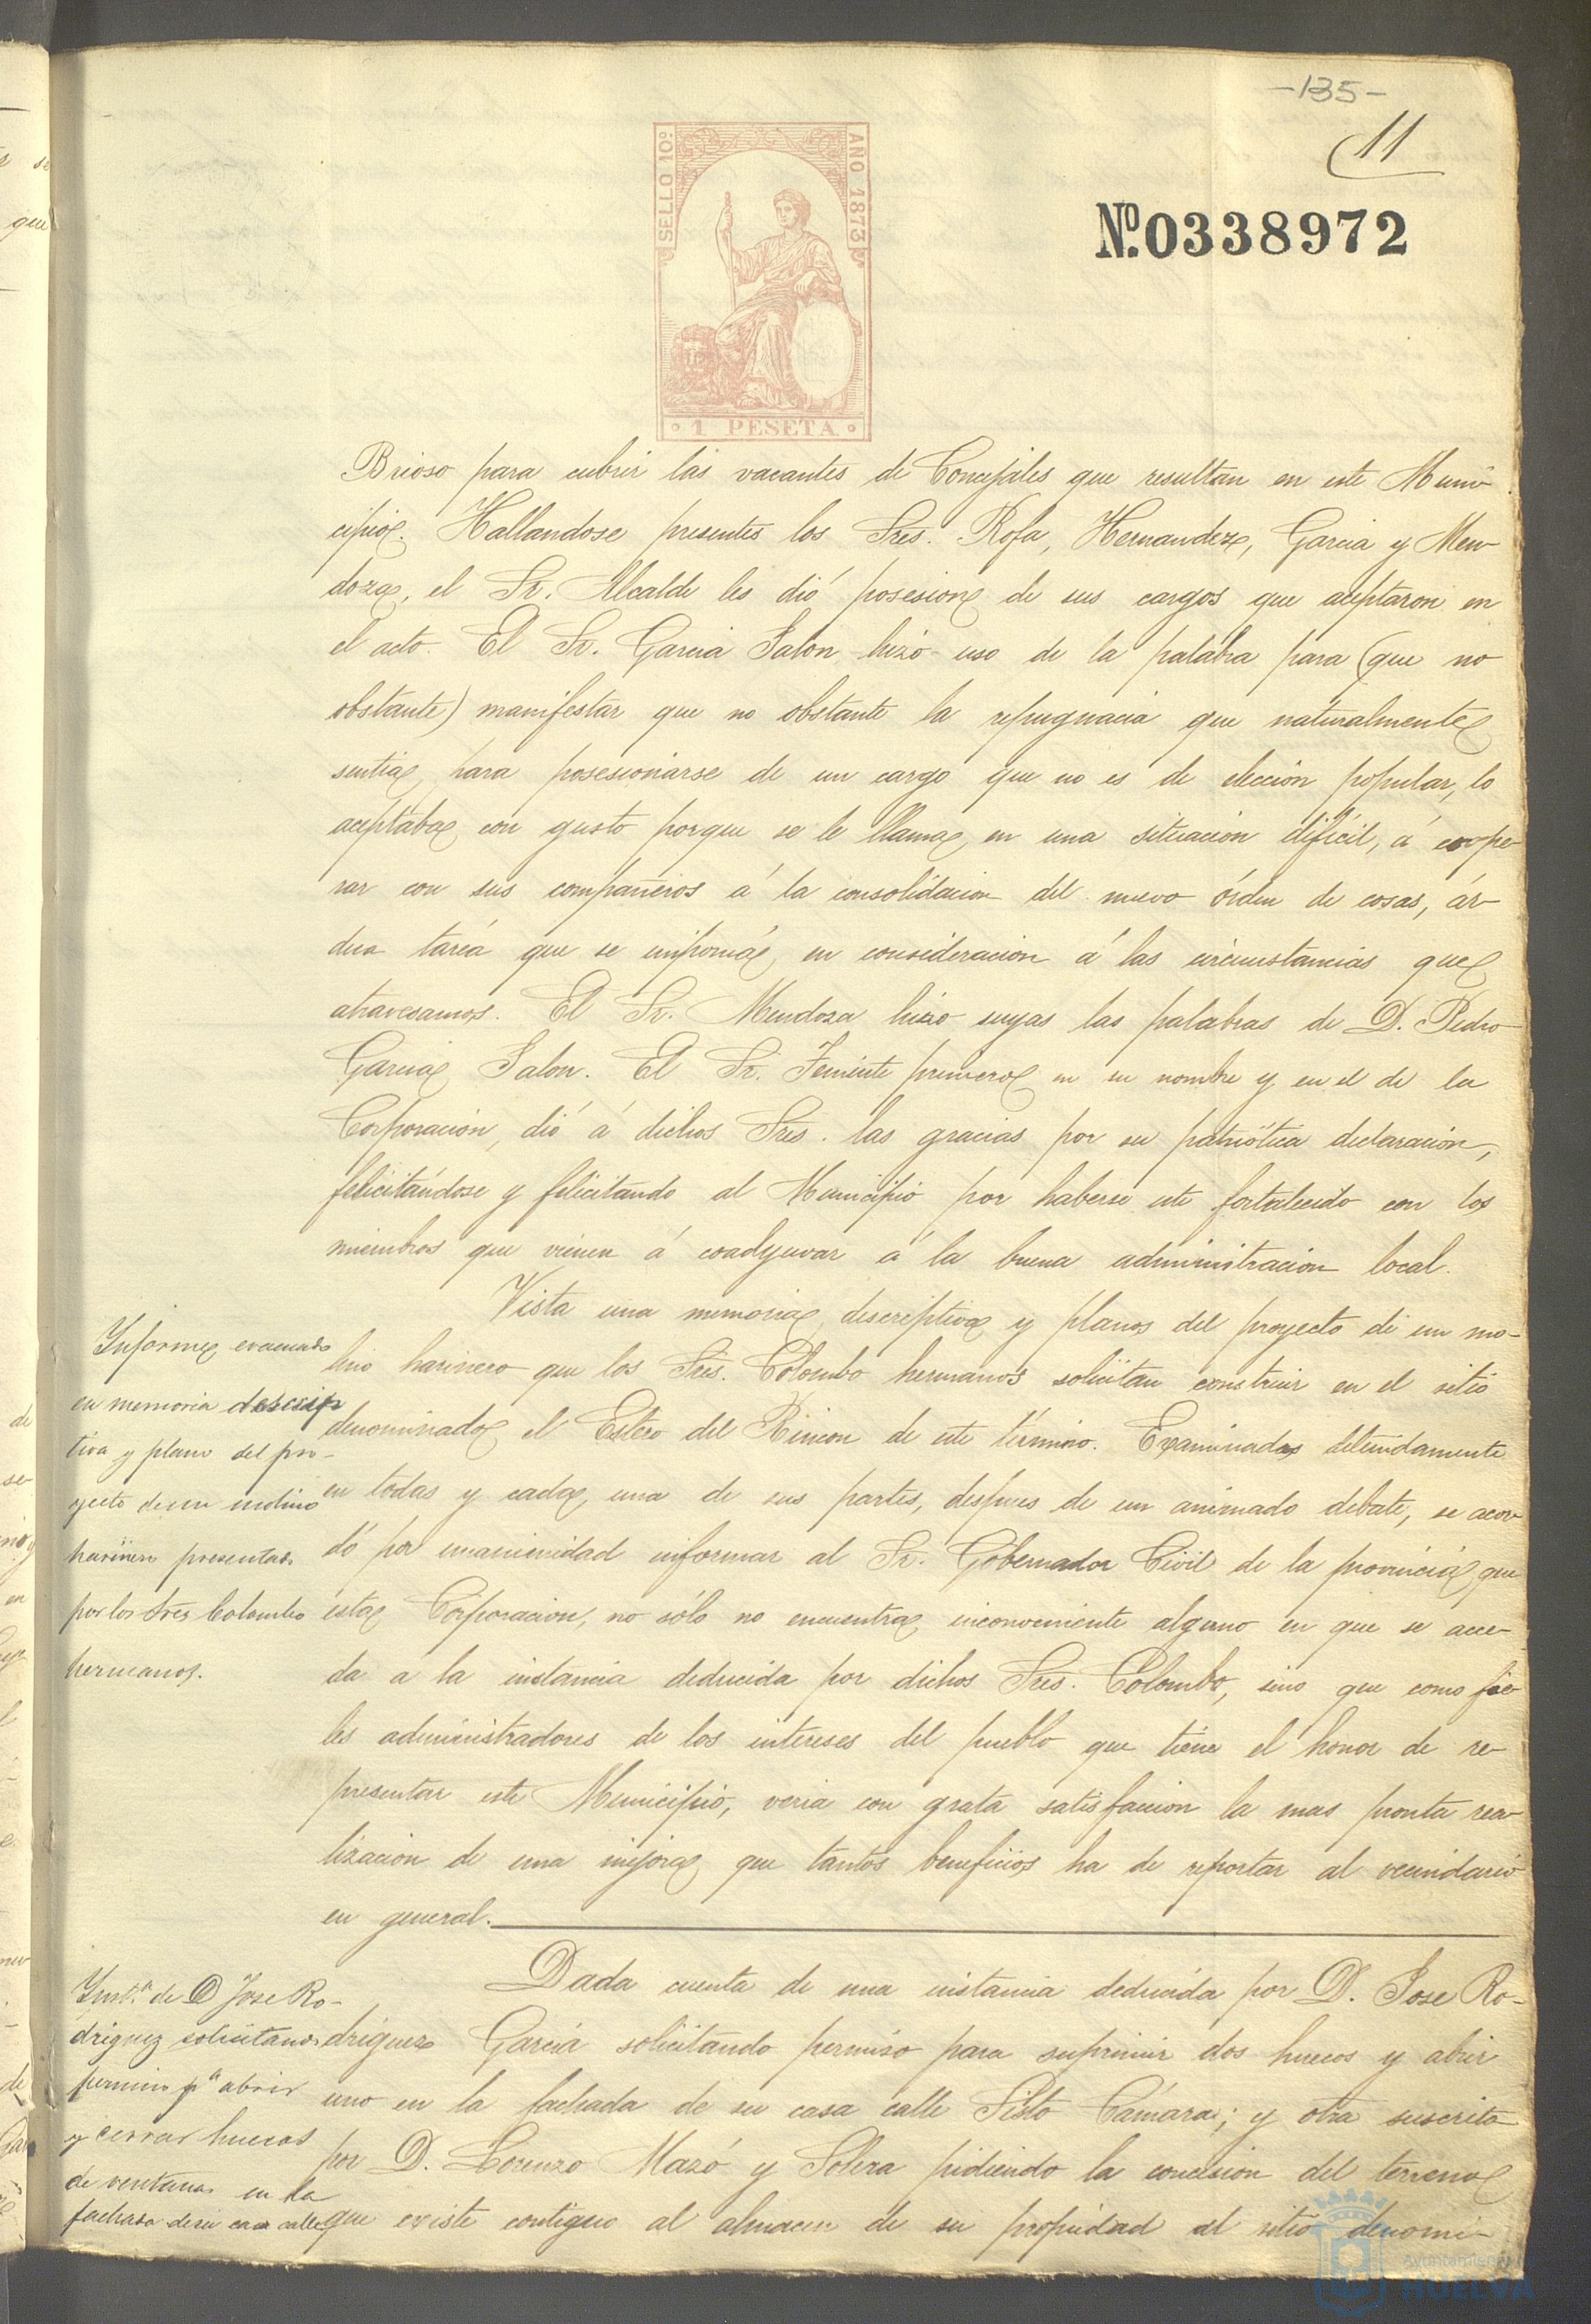 -135-
11
SELLO 10º
AÑO 1873
Nº.0338972
1 PESETA
Brioso para cubrir las vacantes de Concejales que resultan en este Muni-
cipio. Hallandose presentes los Sres. Rofa, Hernandez, Garcia y Men-
doza, el Sr. Alcalde les dió posesion de sus cargos que aceptaron en
el acto. El Sr. Garcia Salon hizo uso de la palabra para (que no
obstante) manifestar que no obstante la repugnacia que naturalmente
sentia para posesionarse de un cargo que no es de eleccion popular, lo
aceptaba con gusto porque se le llama en una situacion dificil, á coope-
rar con sus compañeros á la consolidacion del nuevo órden de cosas, ár-
dua tarea que se imponia en consideracion á las circunstancias que
atravesamos. El Sr. Mendoza hizo suyas las palabras de D. Pedro
Garcia Salon. El Sr. Teniente primero en su nombre y en el de la
Corporacion, dió á dichos Sres. las gracias por su patriótica declaracion,
felicitándose y felicitando al Municipio por haberse este fortalecido con los
miembros que vienen á coadyuvar á la buena administracion local.
Informe evacuado
en memoria descrip
tiva y plano del pro-
yecto de un molino
harinero presentado
por los Sres Colombo
hermanos.
Vista una memoria descriptiva y planos del proyecto de un mo-
lino harinero que los Sres. Colombo hermanos solicitan construir en el sitio
denominado el Estero del Rincon de este término. Examinadas detenidamente
en todas y cada una de sus partes, despues de un animado debate, se acor-
dó por unanimidad informar al Sr. Gobernador Civil de la provincia, que
esta Corporacion, no sólo no encuentra inconveniente alguno en que se acce-
da á la instancia deducida por dichos Sres. Colombo, sino que como fie-
les administradores de los intereses del pueblo que tiene el honor de re-
presentar este Municipio, veria con grata satisfaccion la mas pronta rea-
lizacion de una mejora que tantos beneficios ha de reportar al vecindario
en general.
Inst.ª de D Jose Ro-
driguez solicitando
permiso pª abrir
y cerrar huecos
de ventanas en la
fachada de su casa calle
Dada cuenta de una instancia deducida por D. Jose Ro-
driguez Garcia solicitando permiso para suprimir dos huecos y abrir
uno en la fachada de su casa calle Sisto Cámara; y otra suscrita
por D. Lorenzo Mazó y Solera pidiendo la concesion del terreno
que existe contiguo al almacen de su propiedad al sitio denomi-
Ayuntamiento
HUELVA